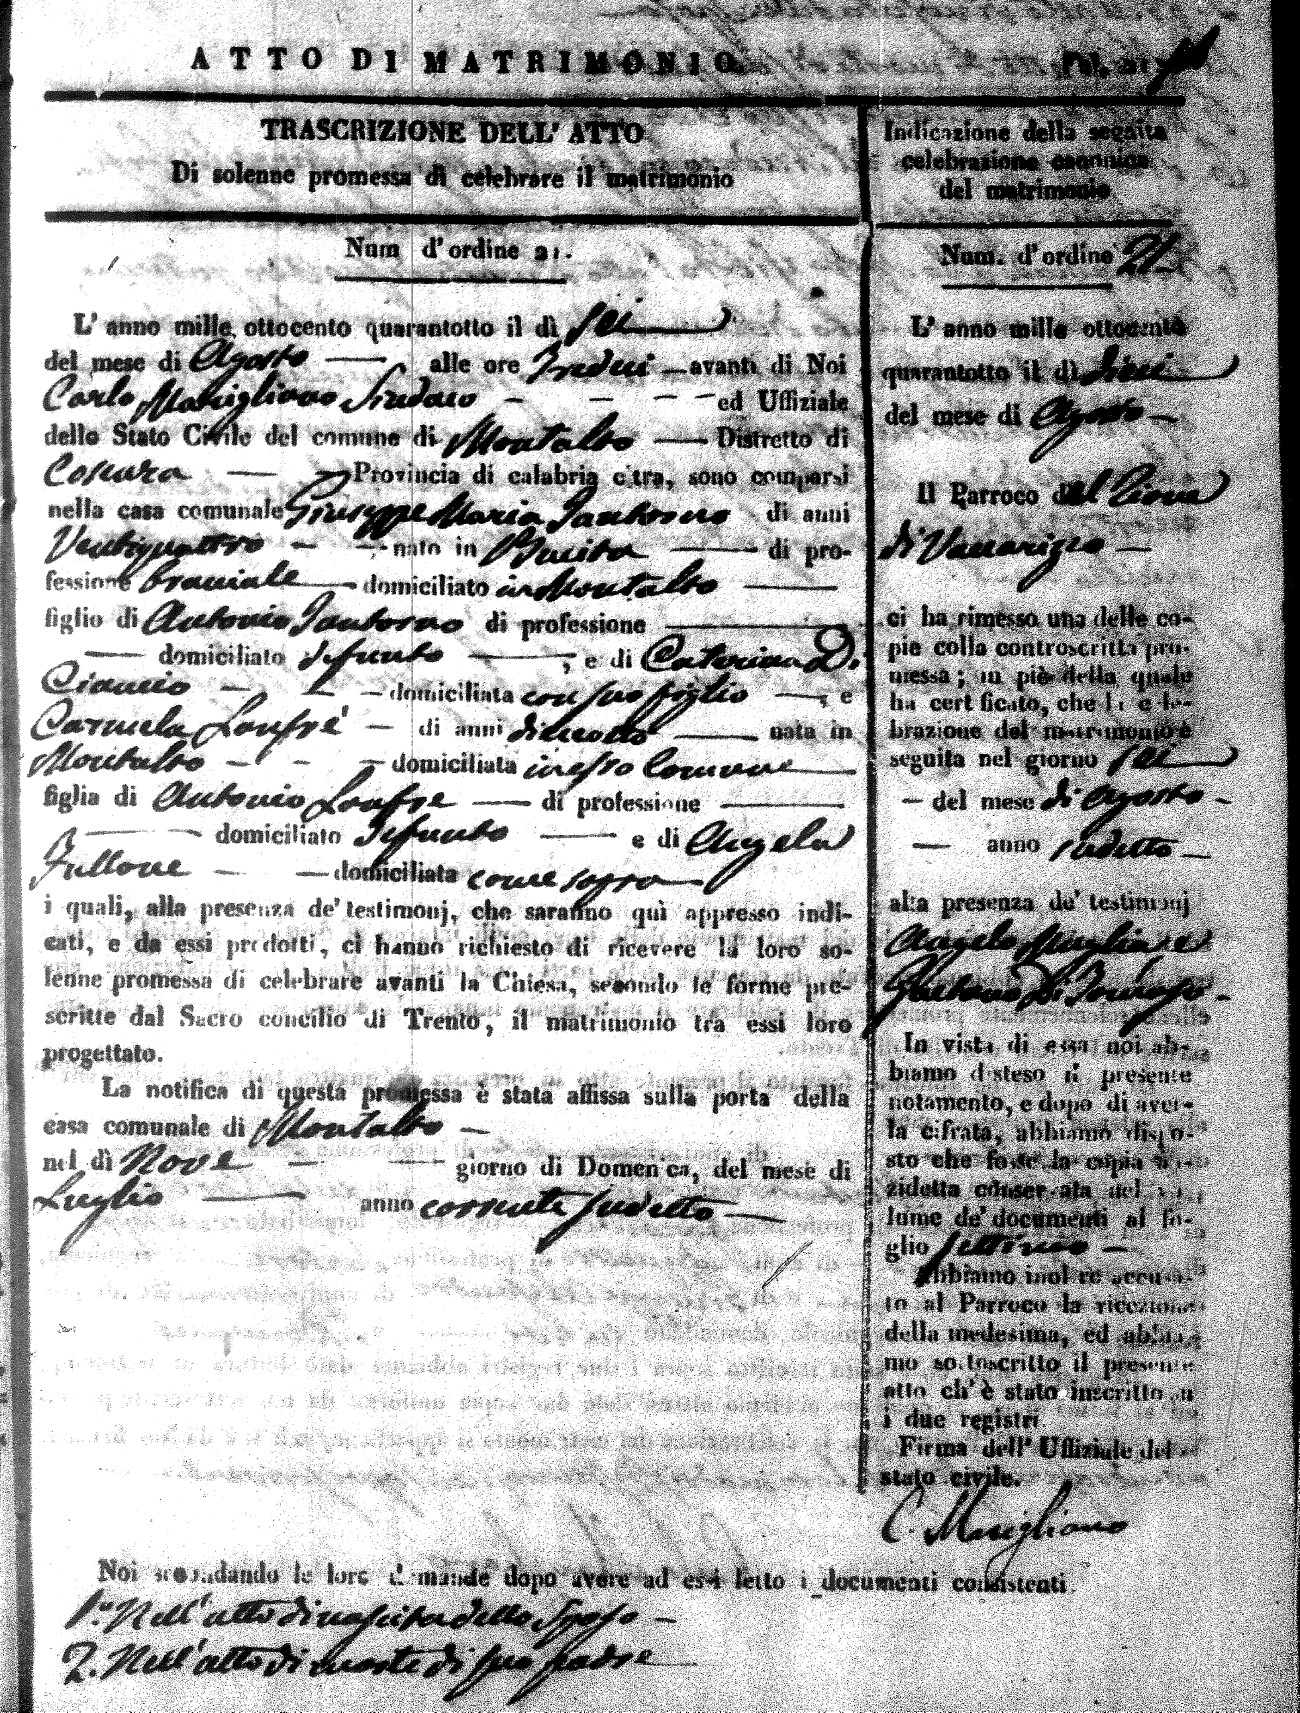 ATTO DI MATRIMONIO
TRASCRIZIONE DELL' ATTO
Di solenne promessa di celebrare il matrimonio
Num d'ordine 21.
L' anno mille ottocento quarantotto il dì sei
del mese di Agosto — alle ore Tredici — avanti di Noi
Carlo Marigliano Sindaco - - - - ed Uffiziale
dello Stato Civile del comune di Montalto — Distretto di
Cosenza — Provincia di calabria citra, sono comparsi
nella casa comunale Giuseppe Maria Santoro di anni
Ventiquattro - - nato in — di pro-
fessione bracciale — domiciliato in Montalto —
figlio di Antonio di professione —
— domiciliato defunto —, e di Caterina Di
Ciancio - - - domiciliata con suo figlio —, e
Carmela Loufré — di anni dieciotto — nata in
Montalto - - - domiciliata in esso Comune
figlia di Antonio Loufre — di professione —
— domiciliato defunto — e di Angela
Fullone - — domiciliata come sopra —
i quali, alla presenza de' testimonj, che saranno quì appresso indi-
cati, e da essi prodotti, ci hanno richiesto di ricevere la loro so-
lenne promessa di celebrare avanti la Chiesa, secondo le forme pre-
scritte dal Sacro concilio di Trento, il matrimonio tra essi loro
progettato.
La notifica di questa promessa è stata affissa sulla porta della
casa comunale di Montalto —
nel dì Nove - — giorno di Domenica, del mese di
Luglio — anno corrente sudetto —
Noi secondando le loro dimande dopo avere ad essi letto i documenti consistenti
1.° Nell'atto di nascita dello Sposo —
2. Nell'atto di morte di suo padre —
Indicazione della seguita
celebrazione canonica
del matrimonio
Num. d'ordine 21
L' anno mille ottocento
quarantotto il dì dieci
del mese di Agosto —
Il Parroco del
di Vaccarizzo —
ci ha rimesso una delle co-
pie colla controscritta pro-
messa; in piè della quale
ha certificato, che la cele-
brazione del matrimonio è
seguita nel giorno sei
— del mese di Agosto -
— anno sudetto —
alla presenza de' testimonj
Angelo Maglia e
Gaetano Di Tomaso -
In vista di essa noi ab-
biamo disteso il presente
notamento, e dopo di aver-
la cifrata, abbiamo dispo-
sto che fosse la copia
zidetta conservata nel vo-
lume de' documenti al fo-
glio settimo —
Abbiamo inoltre accusa-
to al Parroco la ricezione
della medesima, ed abbia-
mo sottoscritto il presente
atto ch' è stato inscritto su
i due registri
Firma dell' Uffiziale del-
stato civile.
C. Marigliano